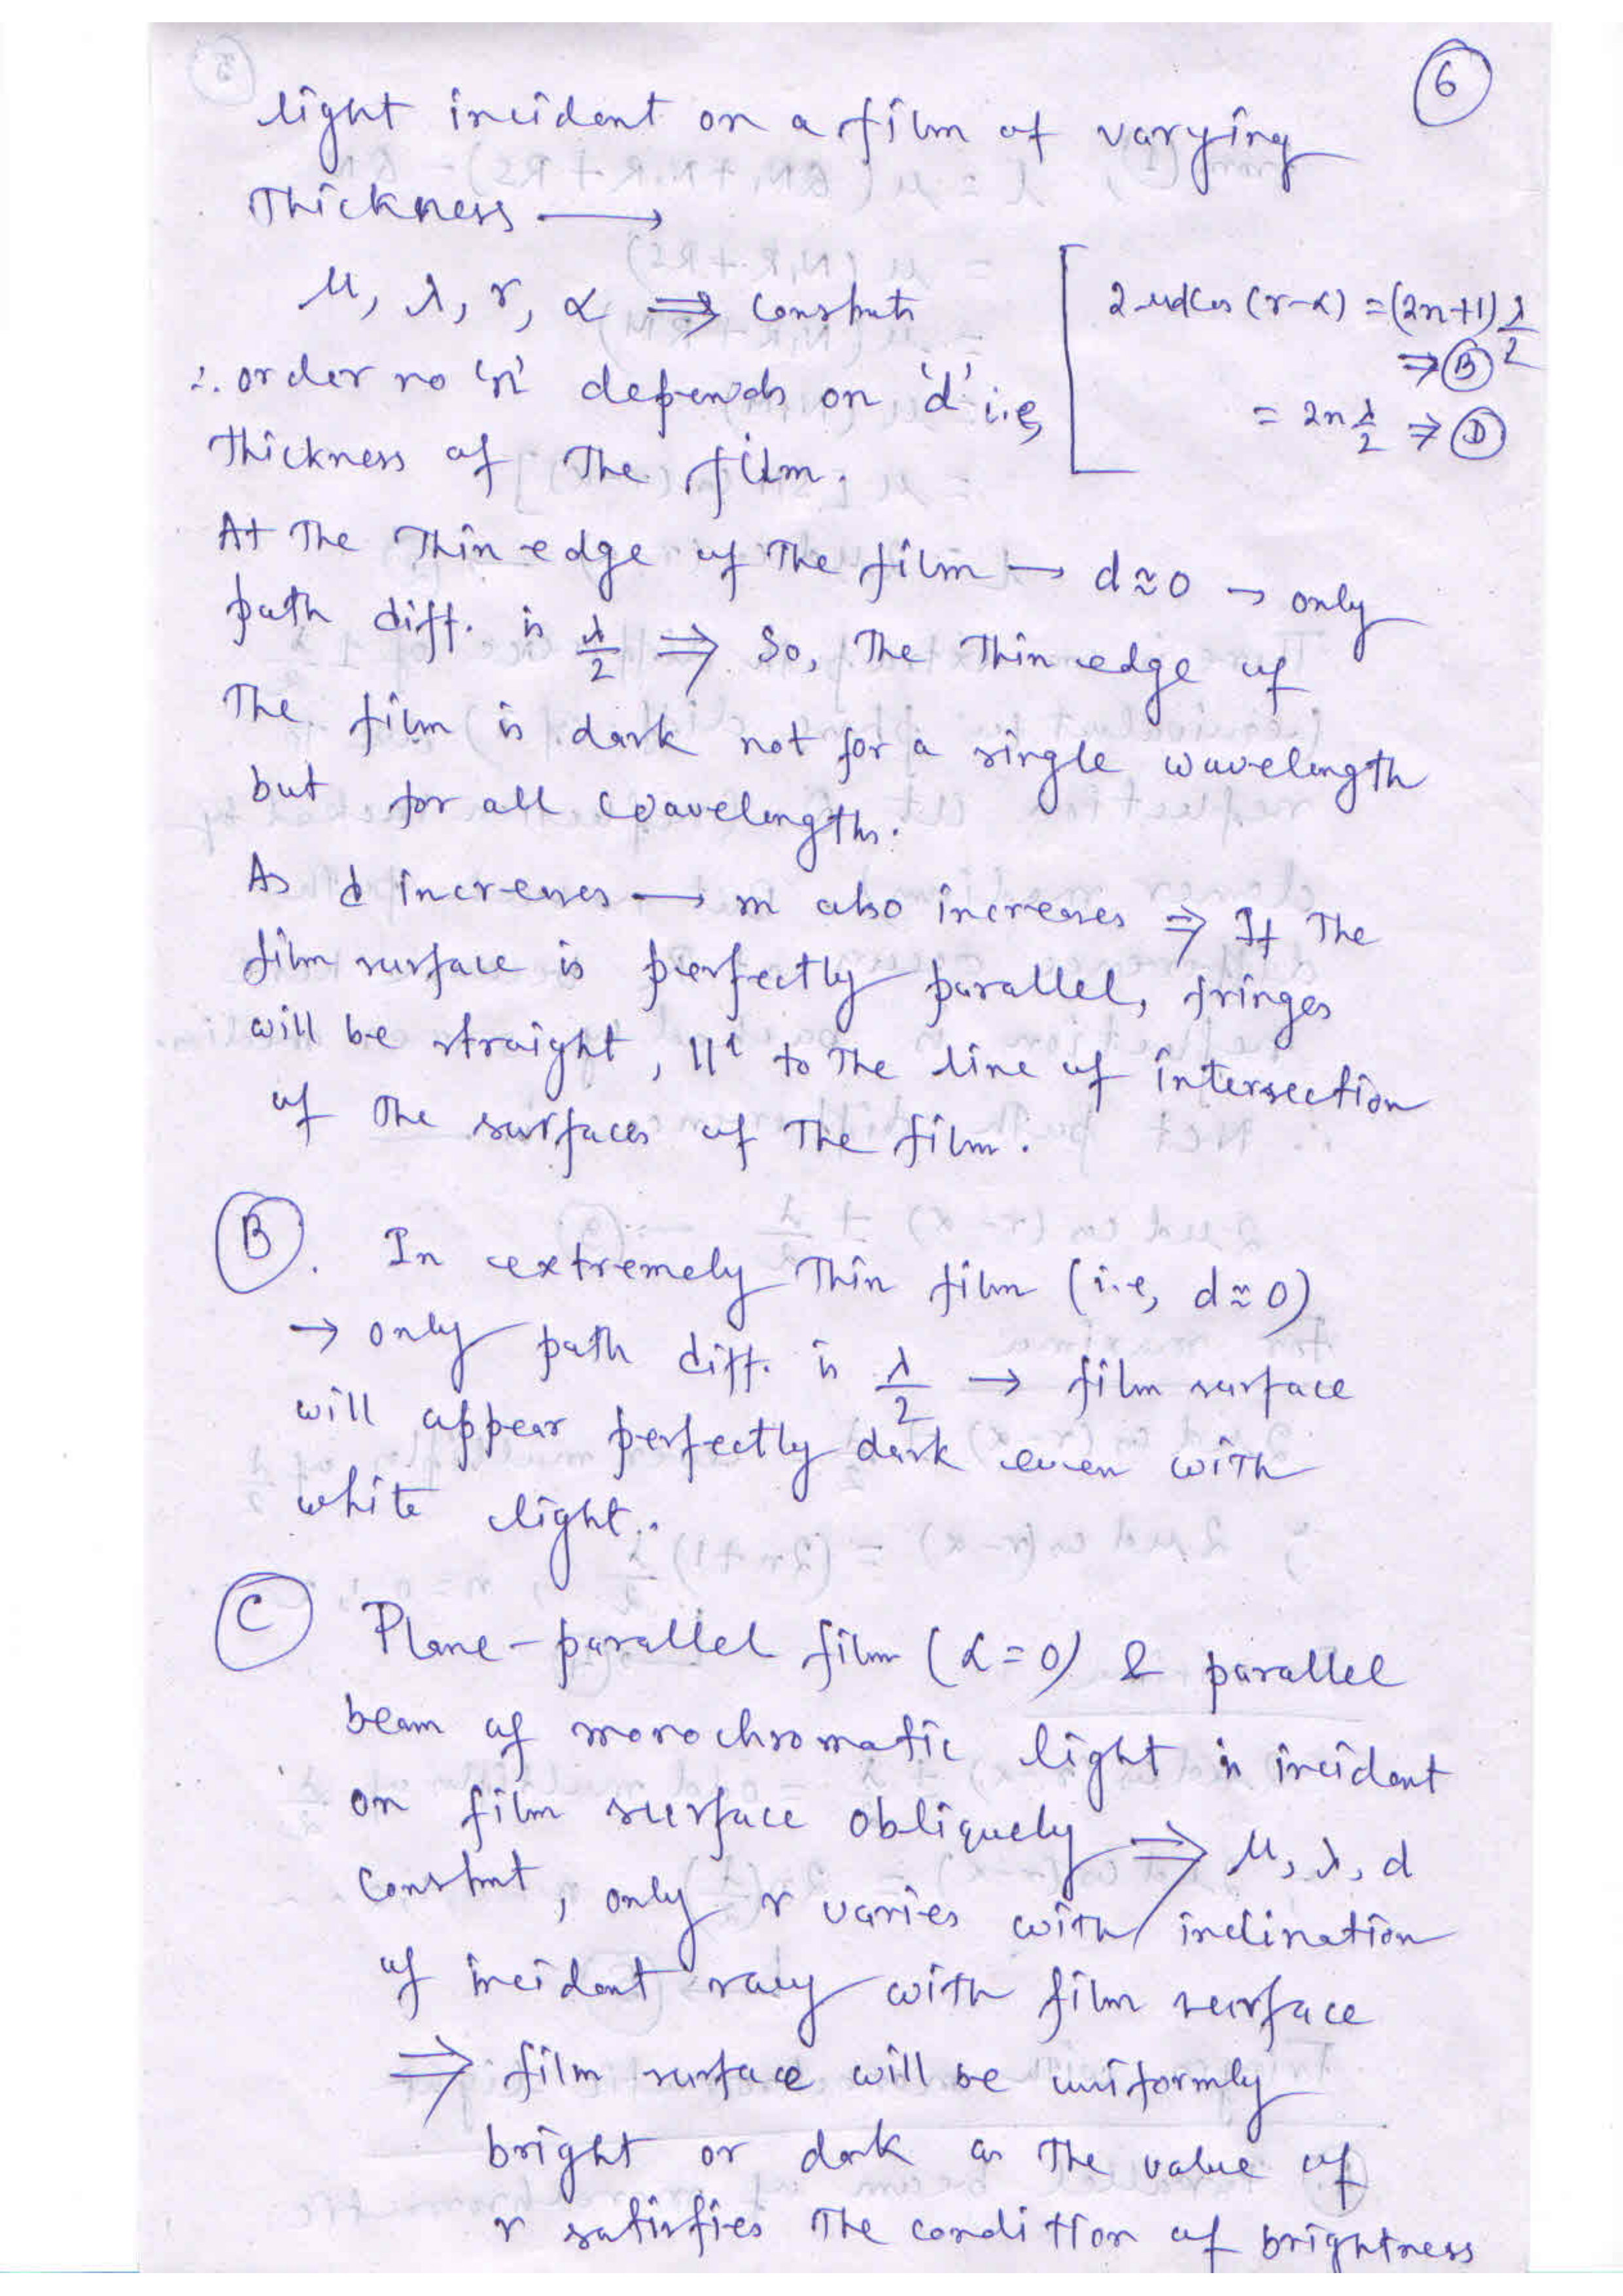 6
light incident on a film of varying
Thickness ⟶
μ, λ, r, α ⇒ Constants
2μd cos (r-α) = (2n+1) λ/2
⇒ B
= 2n λ/2 ⇒ D
∴ order no 'n' depends on 'd' i.e,
thickness of The film.
At The Thin edge of The film → d≈0 → only
path diff. is λ/2 ⇒ So, The Thin edge of
The film is dark not for a single wavelength
but for all wavelengths.
As d increases → n also increases ⇒ If The
film surface is perfectly parallel, fringes
will be straight, ||l to The line of intersection
of The surfaces of The film.
B. In extremely Thin film (i.e, d≈0)
→ only path diff. is λ/2 → film surface
will appear perfectly dark even with
white light.
C Plane-parallel film (α=0) & parallel
beam of monochromatic light is incident
on film surface obliquely ⇒ μ, λ, d
Constant, only r varies with inclination
of incident ray with film surface
⇒ film surface will be uniformly
bright or dark as The value of
r satisfies The condition of brightness